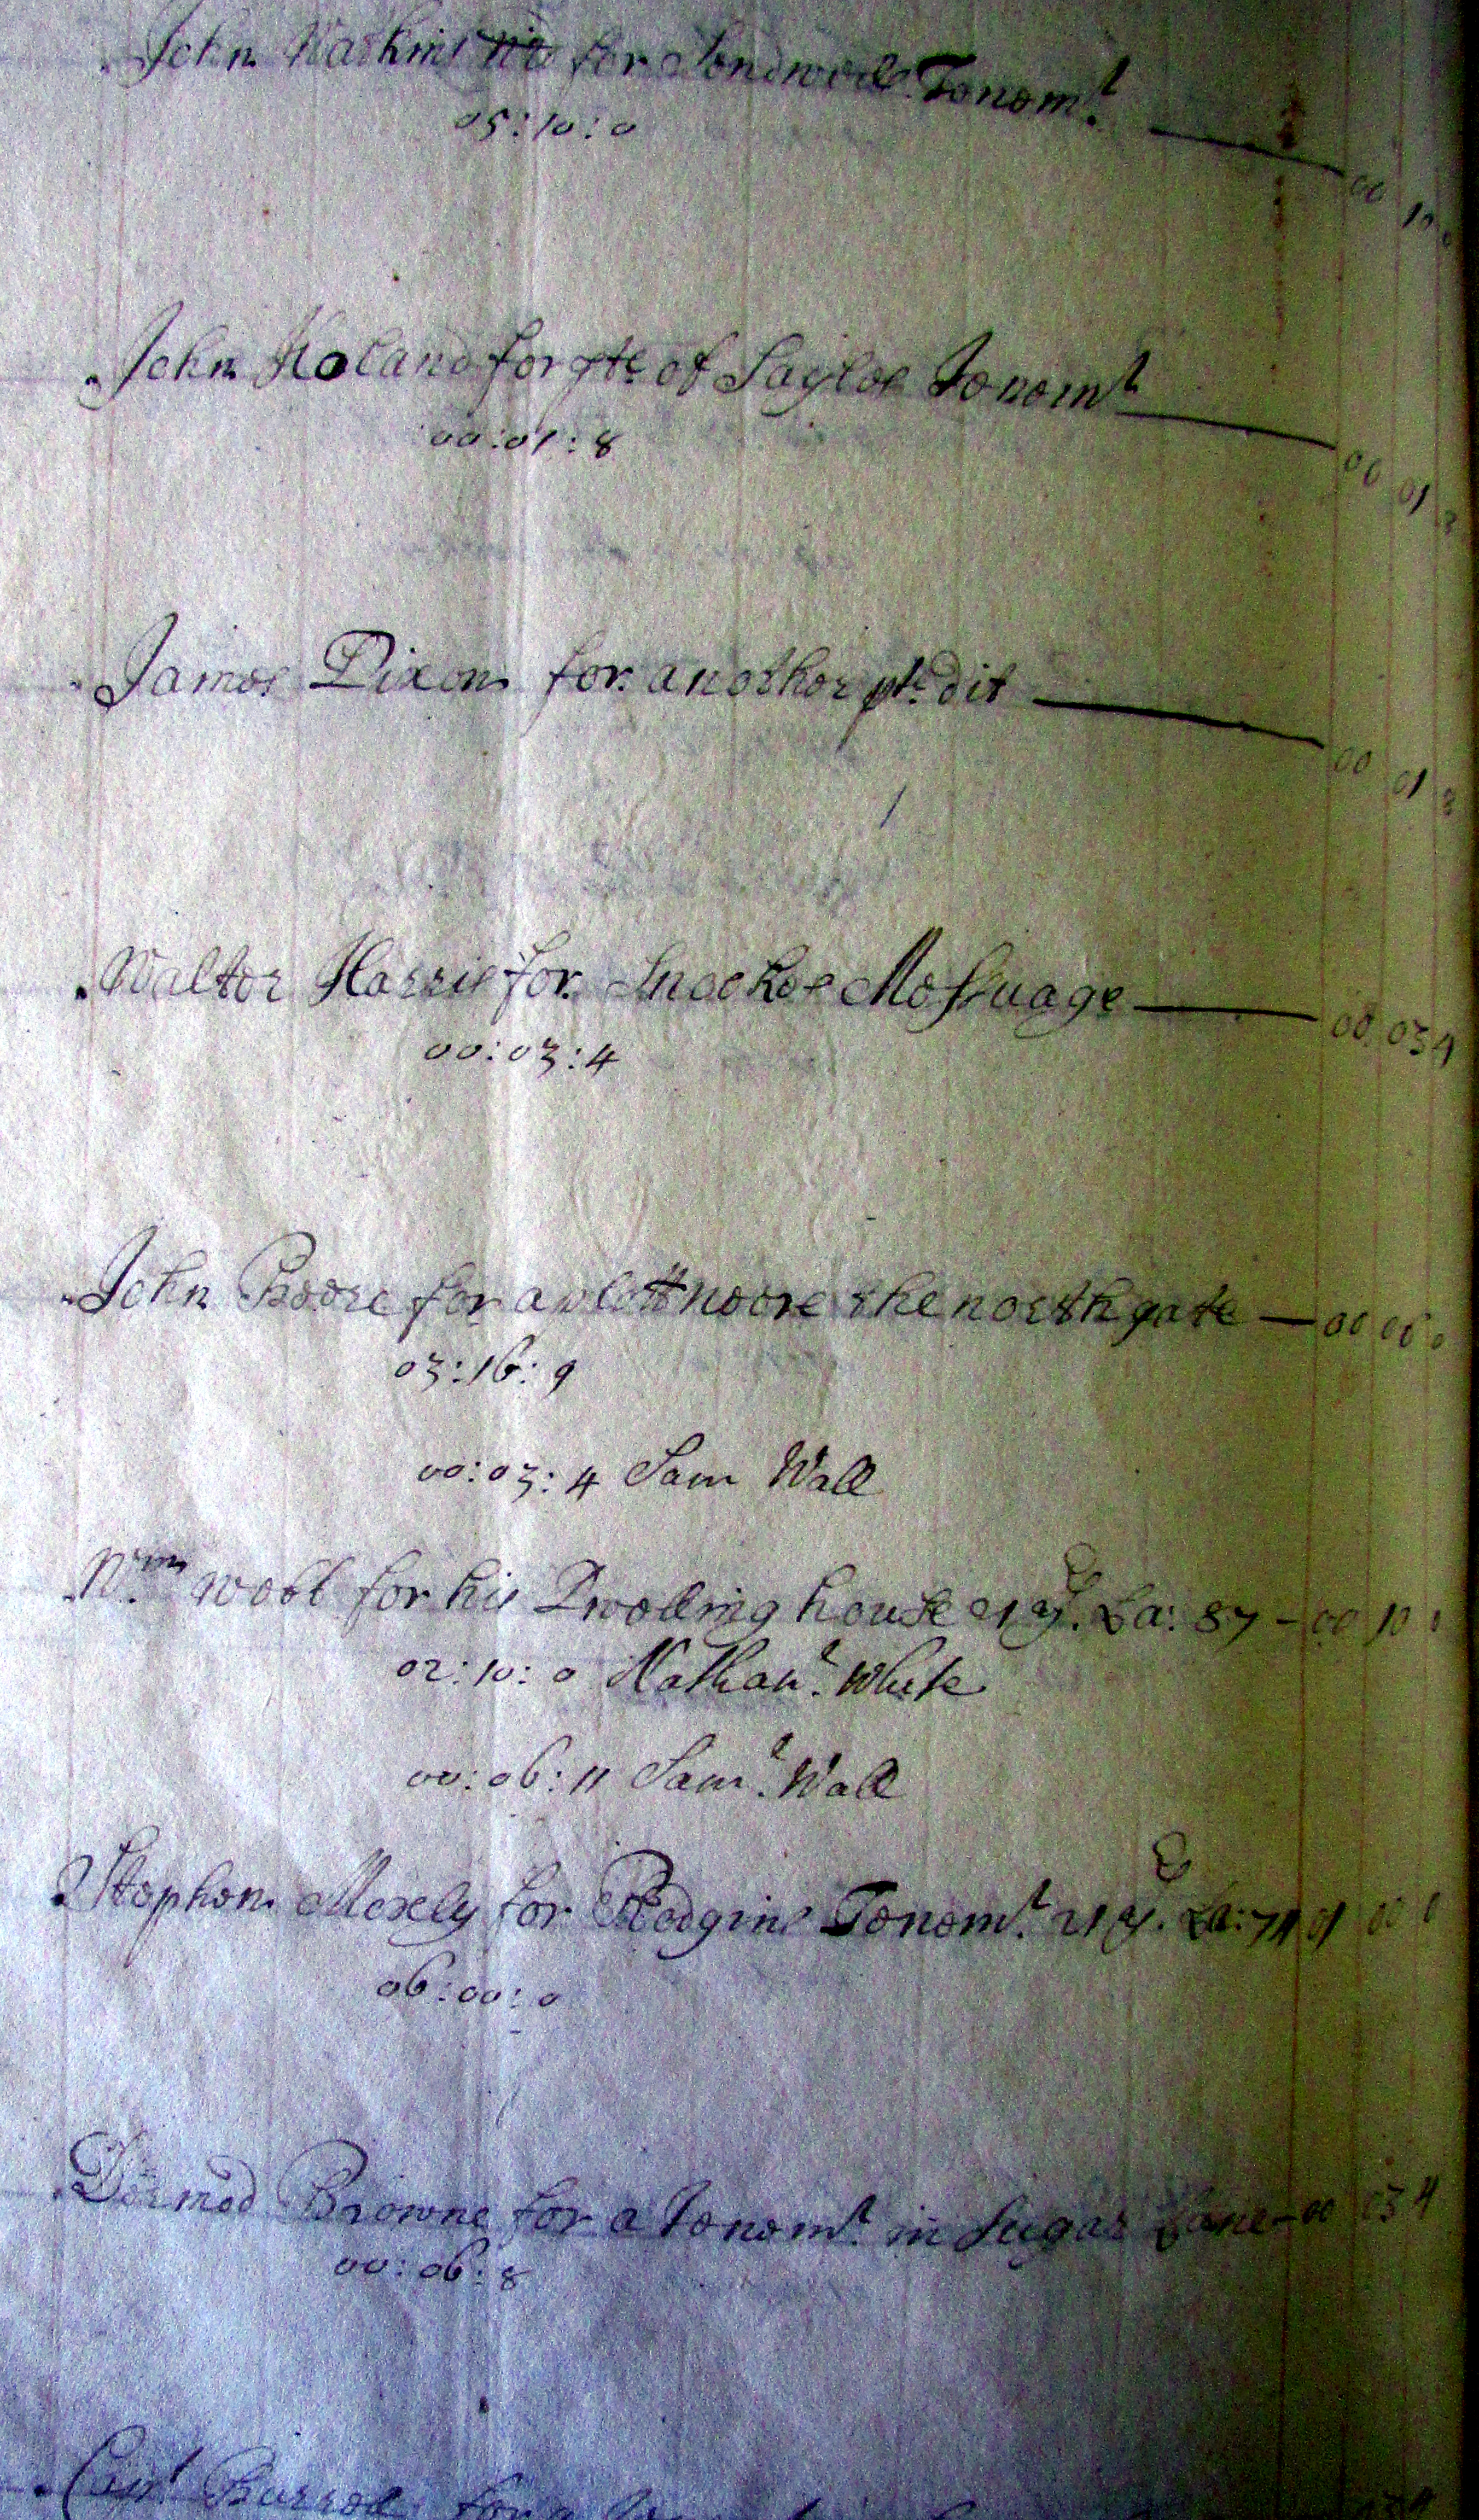 John for Tenem.t
05:10:0 00 10
John Noland for pte of Sayers Tenemt 00 01
00:01:8
James Dixon for another pte dit 00 01
Walter Harris for Messuage 00 03 4
00:03:4
John Boore for a plott neere the north gate 00
03:16:9
00:03:4 Sam Wall
Wm. Webb for his Dwelling house 21 y. La: 87 - 00 10
02:10:0 Nathanl. White
00:06:11 Saml. Wall
Stephen Moxely for Tenem.t 21 y. La: 01 00
06:00:0
Dermod Browne for a Tenem.t in Sugar Lane - 00 03 4
00:06:8
for a